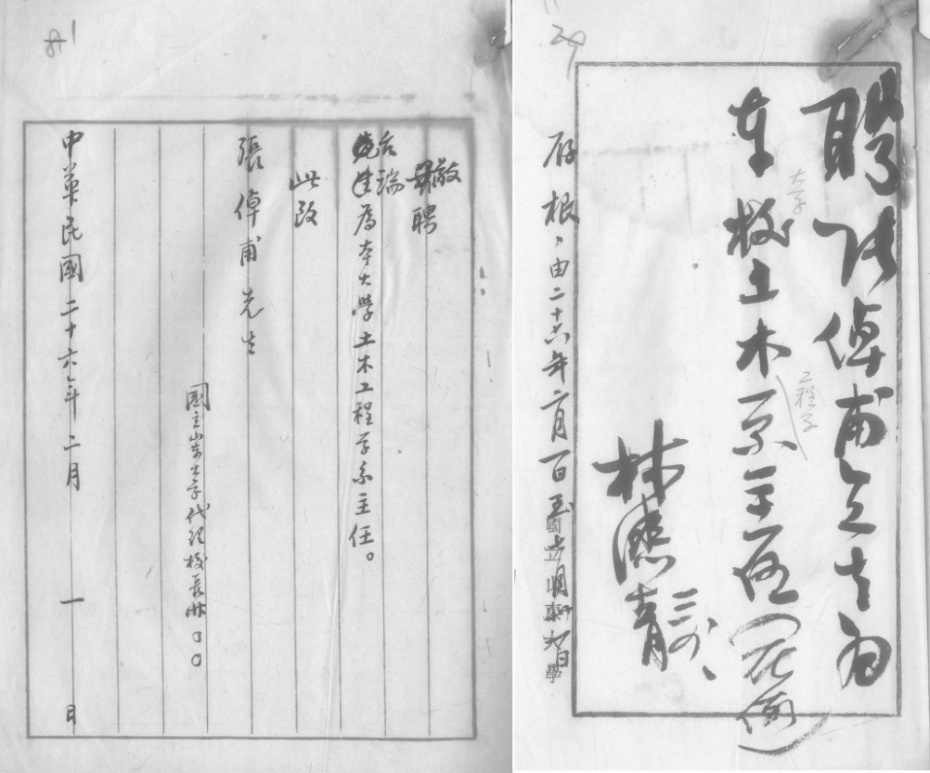 29
聘張倬甫先生為
本校土木系主任(无俸)
大学
工程学
林濟青
存根、由二十六年二月一日至
敬聘
台端
為本大學土木工程学系主任。
此致
張倬甫先生
國立山東大学代理校長林〇〇
中華民國二十六年二月 一 日